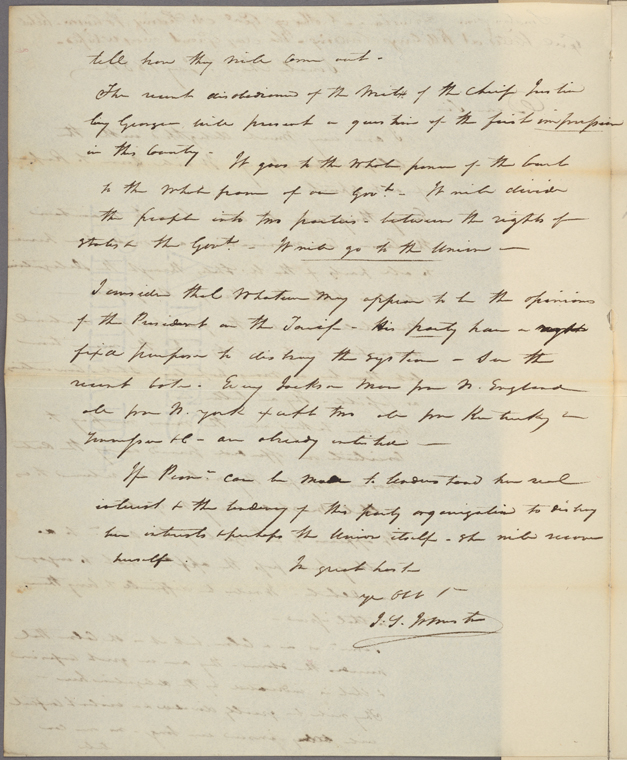 tell how they will come out -
The recent disobedience of the Writ of the Chief Justice
by Georgia will present a question of the first impression
in this County - It goes to the whole power of the Court
to the whole power of our Govt. - It will divide
the people into two parties - between the rights of
States & the Govt. - It will go to the Union —
I consider that whatever may appear to be the opinions
of the President on the Tariff - His party have a
fixd purpose to destroy the system - See the
recent vote. Every Jackson Man from N. England
all from N. York except two all from Kentucky &
Tennessee &c - are already enlisted —
If Penna. can be made to understand her real
interest & the tendency of this party organization to destroy
her interests & perhaps the Union itself - she will recover
herself. In great haste
yr Obt Sr
J. S. Johnston